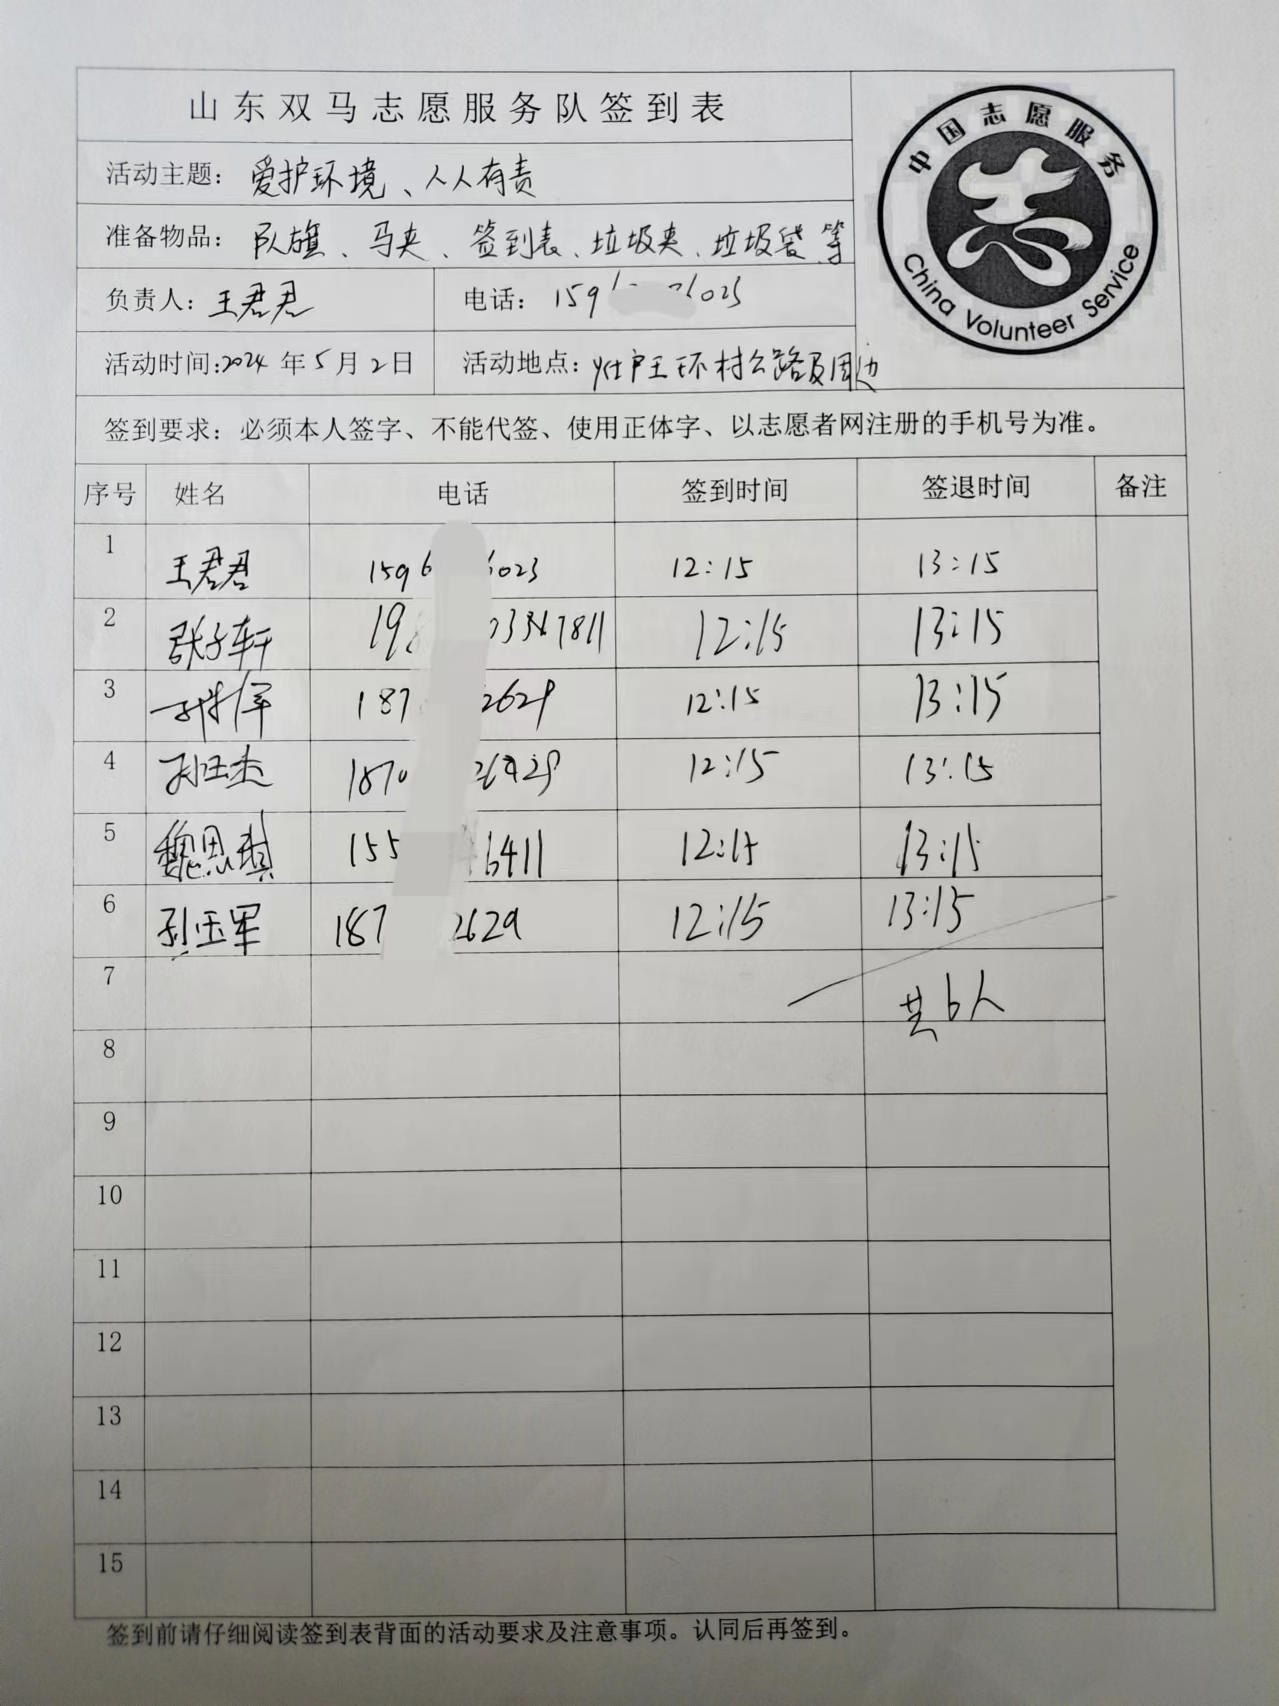 山东双马志愿服务队签到表
中国志愿服务
China Volunteer Service
活动主题：爱护环境、人人有责
准备物品：队旗、马夹、签到表、垃圾夹、垃圾袋等
负责人：王君君 电话：159 6023
活动时间：2024年5月2日 活动地点：王环村公路及周边
签到要求：必须本人签字、不能代签、使用正体字、以志愿者网注册的手机号为准。
序号 姓名 电话 签到时间 签退时间 备注
1 王君君 1596 6023 12:15 13:15
2 张子轩 19 7811 12:15 13:15
3 187 2629 12:15 13:15
4 孙玉杰 1870 12:15 13:15
5 魏思琪 155 6411 12:15 13:15
6 孙玉军 187 2629 12:15 13:15
7 共6人
8
9
10
11
12
13
14
15
签到前请仔细阅读签到表背面的活动要求及注意事项。认同后再签到。